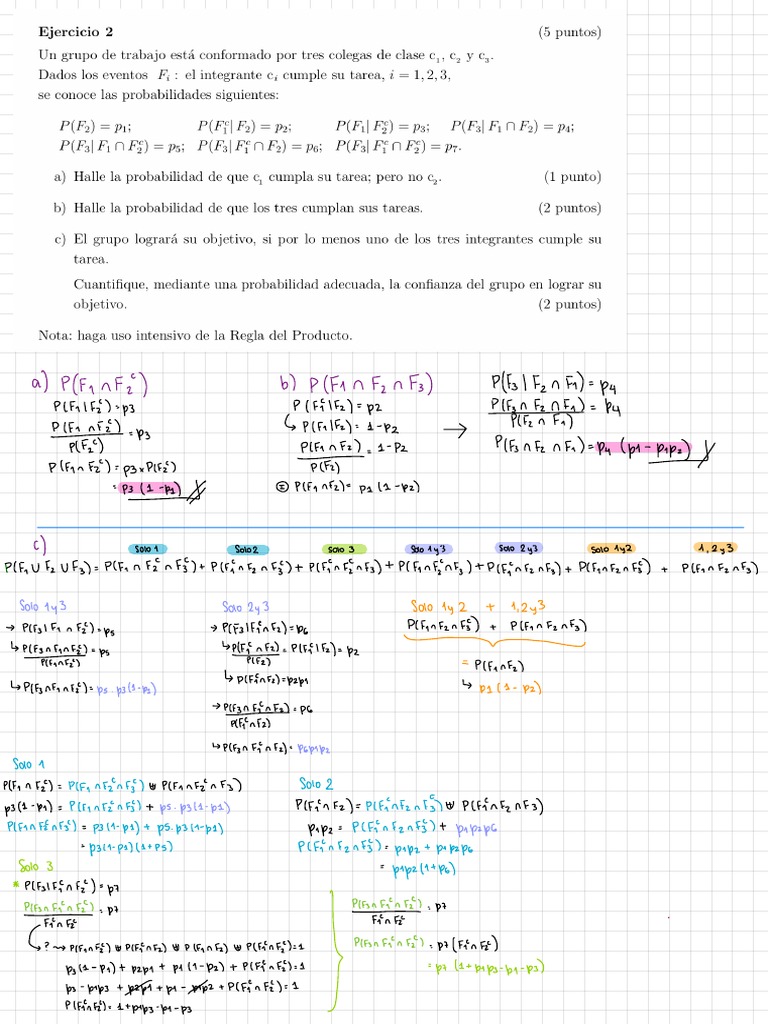 Ejercicio 2 (5 puntos)
Un grupo de trabajo está conformado por tres colegas de clase c₁, c₂ y c₃.
Dados los eventos Fᵢ : el integrante cᵢ cumple su tarea, i = 1, 2, 3,
se conoce las probabilidades siguientes:
P(F₂) = p₁; P(F₁ᶜ| F₂) = p₂; P(F₁| F₂ᶜ) = p₃; P(F₃| F₁ ∩ F₂) = p₄;
P(F₃| F₁ ∩ F₂ᶜ) = p₅; P(F₃| F₁ᶜ ∩ F₂) = p₆; P(F₃| F₁ᶜ ∩ F₂ᶜ) = p₇.
a) Halle la probabilidad de que c₁ cumpla su tarea; pero no c₂. (1 punto)
b) Halle la probabilidad de que los tres cumplan sus tareas. (2 puntos)
c) El grupo logrará su objetivo, si por lo menos uno de los tres integrantes cumple su
tarea.
Cuantifique, mediante una probabilidad adecuada, la confianza del grupo en lograr su
objetivo. (2 puntos)
Nota: haga uso intensivo de la Regla del Producto.
a) P(F₁ ∩ F₂ᶜ)
P(F₁|F₂ᶜ)=p3
P(F₁ ∩F₂ᶜ)/P(F₂ᶜ) = p3
P(F₁∩F₂ᶜ)=p3×P(F₂ᶜ)
= p3(1-p1)
b) P(F1 ∩ F₂ ∩ F₃)
P(F₁ᶜ|F₂)=p2
↳ P(F₁|F₂)= 1-p2
P(F₁ ∩ F₂)/P(F₂) = 1-p2
② P(F₁∩F₂)= p1(1-p2)
→
P(F₃ | F₂ ∩ F₁)= p4
P(F₃ ∩ F₂ ∩F₁)/P(F₂ ∩ F₁) = p4
P(F₃∩ F₂ ∩F₁)= p4 (p1-p1p2)
c) Solo 1 Solo 2 Solo 3 Solo 1y3 Solo 2y3 Solo 1y2 1,2y3
P(F₁ ∪ F₂ ∪ F₃)= P(F₁ ∩ F₂ᶜ ∩ F₃ᶜ)+ P(F₁ᶜ∩ F₂ ∩ F₃ᶜ)+P(F₁ᶜ∩F₂ᶜ∩F₃) +P(F₁∩F₂ᶜ∩F₃) +P(F₁ᶜ∩F₂∩F₃)+ P(F₁∩F₂∩F₃ᶜ) + P(F₁∩F₂∩F₃)
Solo 1y3
→ P(F₃|F₁ ∩ F₂ᶜ)=p5
↳ P(F₃∩F₁∩F₂ᶜ)/P(F₁∩F₂ᶜ) = p5
↳P(F₃∩F₁∩F₂ᶜ)= p5.p3(1-p2)
Solo 2y3
→ P(F₃|F₁ᶜ∩F₂)=p6
↳P(F₁ᶜ∩F₂)/P(F₂) = P(F₁ᶜ|F₂)=p2
↳ P(F₁ᶜ∩F₂)=p2p1
→ P(F₃∩F₁ᶜ∩F₂)/P(F₁ᶜ∩F₂) = p6
↳P(F₃∩ F₁ᶜ∩F₂)= p6p1p2
Solo 1y 2 + 1,2y3
P(F₁∩F₂∩F₃ᶜ) + P(F₁∩F₂∩F₃)
= P(F₁∩F₂)
↳ p1(1-p2)
Solo 1
P(F₁ ∩ F₂ᶜ)= P(F₁∩F₂ᶜ∩F₃ᶜ) ⊎ P(F₁∩F₂ᶜ∩F₃)
p3(1-p1) = P(F₁∩F₂ᶜ∩F₃ᶜ) + p5.p3(1-p1)
P(F₁∩F₂ᶜ∩F₃ᶜ)= p3(1-p1) + p5.p3(1-p1)
= p3(1-p1)(1+p5)
Solo 2
P(F₁ᶜ∩F₂)=P(F₁ᶜ∩F₂∩F₃ᶜ)⊎ P(F₁ᶜ∩F₂∩F₃)
p1p2 = P(F₁ᶜ∩F₂∩F₃ᶜ)+ p1p2p6
P(F₁ᶜ∩F₂∩F₃ᶜ)= p1p2 + p1p2p6
= p1p2(1+p6)
Solo 3
* P(F₃|F₁ᶜ∩F₂ᶜ)=p7
P(F₃∩F₁ᶜ∩F₂ᶜ)/F₁ᶜ∩F₂ᶜ = p7
? → P(F₁∩F₂ᶜ) ⊎ P(F₁ᶜ∩F₂) ⊎ P(F₁∩F₂) ⊎ P(F₁ᶜ∩F₂ᶜ)=1
p3(1-p1)+ p2p1 + p1(1-p2)+ P(F₁ᶜ∩F₂ᶜ)=1
p3-p1p3 + p2p1 + p1- p1p2 + P(F₁ᶜ∩F₂ᶜ)=1
P(F₁ᶜ∩F₂ᶜ)= 1+p1p3-p1-p3
P(F₃∩F₁ᶜ∩F₂ᶜ)/F₁ᶜ∩F₂ᶜ = p7
P(F₃∩F₁ᶜ∩F₂ᶜ) = p7(F₁ᶜ∩F₂ᶜ)
= p7 (1+p1p3-p1-p3)